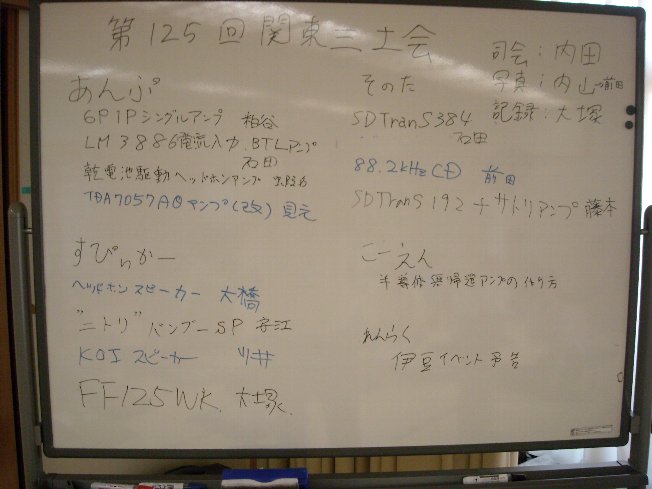 第125回関東三土会
司会：内田
写真：内山→前田
記録：大塚
あんぷ
6P1Pシングルアンプ 粕谷
LM3886電流入力.BTLアンプ
石田
乾電池駆動ヘッドホンアンプ
TDA7057AQアンプ(改) 見元
すぴいかー
ヘッドホンスピーカー 大橋
"ニトリ"バンブーSP 安江
KOJスピーカー 筒井
FF125WK. 大塚
そのた
SDTranS384
石田
88.2kHz CD 前田
SDTranS192+サトリアンプ 藤本
こーえん
半導体無帰還アンプの作り方
れんらく
伊豆イベント予告